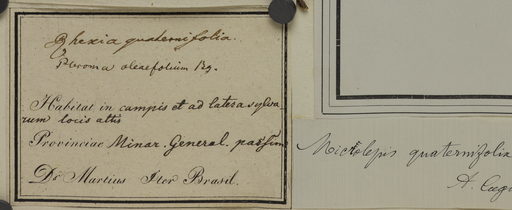 Rhexia quaternifolia.
Pleroma oleaefolium Rg.
Habitat in campis et ad latera sylva-
rum locis altis
Provinciae Minar. General. passim
Dr Martius Iter Brasil.
Microlepis quaternifolia
A. Cogn